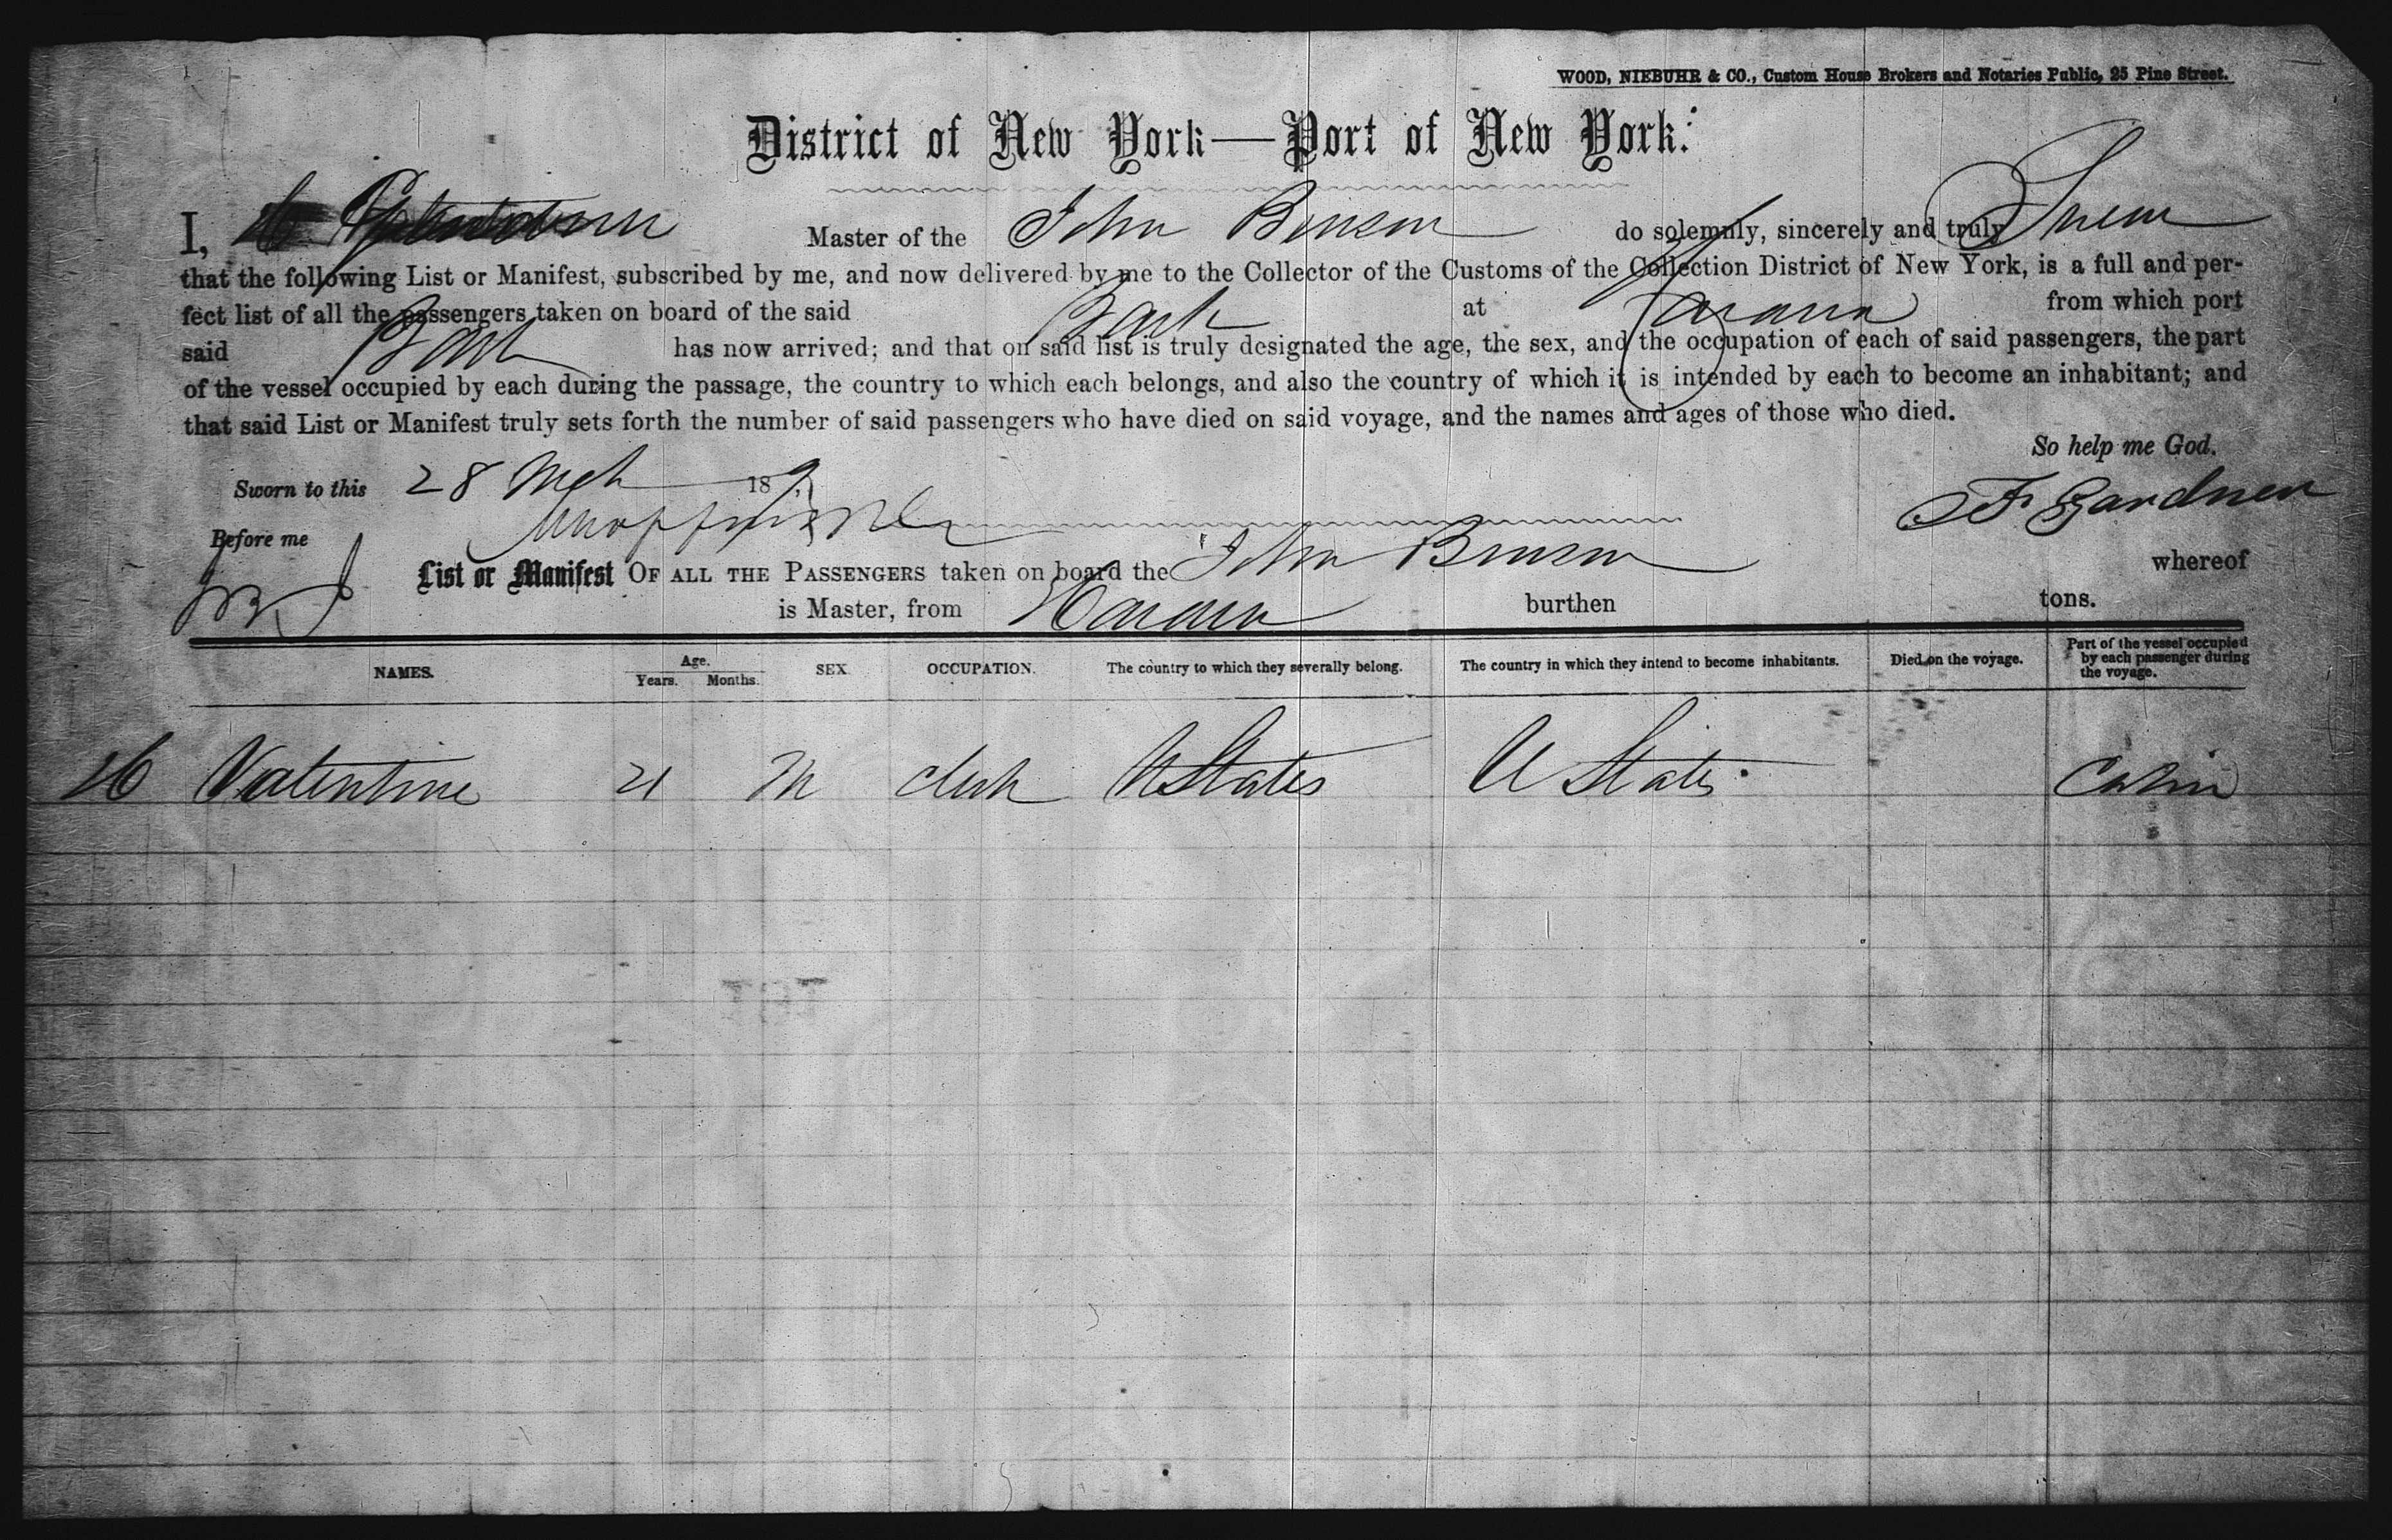 WOOD, NIEBUHR & CO., Custom House Brokers and Notaries Public, 25 Pine Street.
District of New York—Port of New York:
I, Master of the John Benson do solemnly, sincerely and truly Swear
that the following List or Manifest, subscribed by me, and now delivered by me to the Collector of the Customs of the Collection District of New York, is a full and per-
fect list of all the passengers taken on board of the said Bark at Havana from which port
said Bark has now arrived; and that on said list is truly designated the age, the sex, and the occupation of each of said passengers, the part
of the vessel occupied by each during the passage, the country to which each belongs, and also the country of which it is intended by each to become an inhabitant; and
that said List or Manifest truly sets forth the number of said passengers who have died on said voyage, and the names and ages of those who died.
So help me God.
Sworn to this 28 Mch 189
F Gardner
Before me
List or Manifest OF ALL THE PASSENGERS taken on board the John Benson whereof
is Master, from Havana burthen tons.
NAMES. Age. Years. Months. SEX OCCUPATION. The country to which they severally belong. The country in which they intend to become inhabitants. Died on the voyage. Part of the vessel occupied by each passenger during the voyage.
Valentine 21 M clerk U States U States Cabin